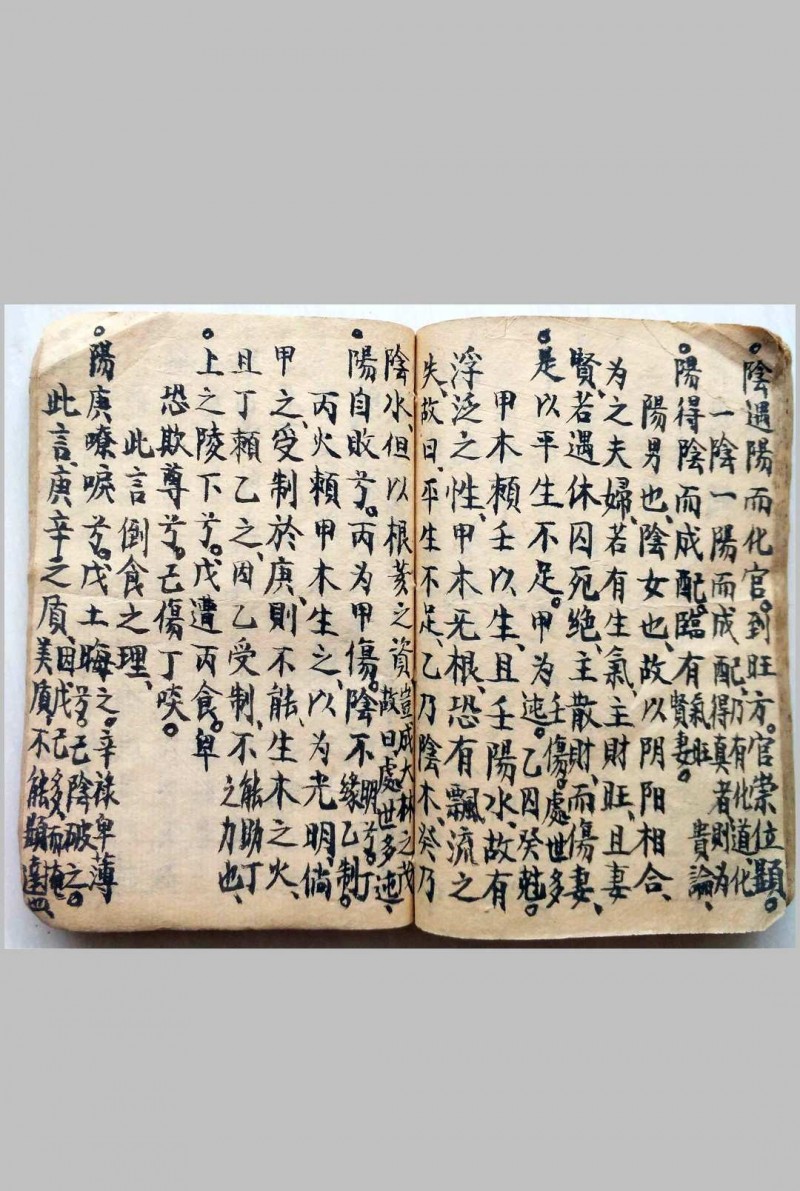 陰遇陽而化官。到旺方。官崇位顯。
一陰一陽而成配、乃有化道、化得真者、則为貴論、
陽得陰而成配。臨有氣旺賢妻。
陽男也、陰女也、故以阴阳相合、
为之夫婦、若有生氣、主財旺、且妻
賢、若遇休囚死絶、主散財、而傷妻、
是以平生不足。甲为壬傷。處世多迍。乙因癸尅。
甲木頼壬以生、且壬陽水、故有
浮泛之性、甲木旡根、恐有飄流之
失、故曰、平生不足、乙乃陰木、癸乃
陰水、但以根荄之資、豈成大林之茂、故曰、處世多迍、
陽自敗兮。丙为甲傷。陰不明兮。丁缘乙制。
丙火頼甲木生之、以为光明、倘
甲之、受制於庚、則不能、生木之火、
且丁頼乙之、因乙受制、不能助丁之力也、
上之陵下兮。戊遭丙食。卑
恐欺尊兮。己傷丁啖。
此言倒食之理、
陽庚嘹唳兮。戊土晦之。辛禄卑薄兮。己陰破之。
此言、庚辛之質、因戊己多而掩美質、不能顯達